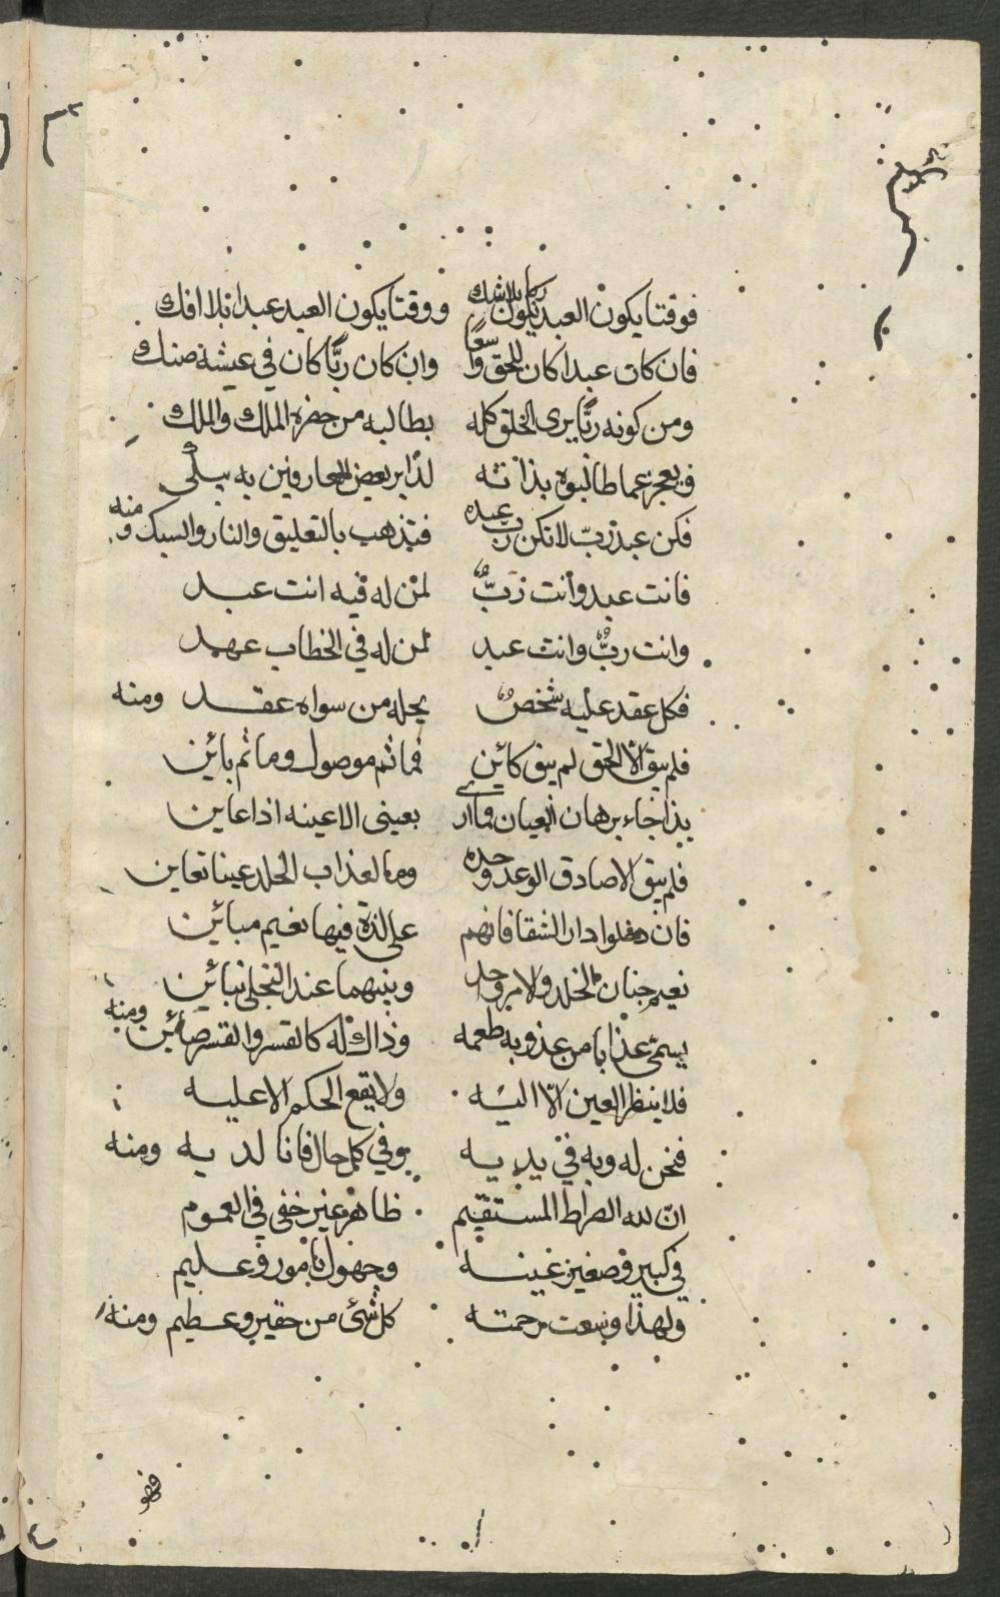 فوقتا يكون العبد ربا بلا شك ووقتا يكون العبد عبدا بلا افك
فان كان عبدا كان للحق واسعا وان كان ربًّا كان في عيشة ضنك
ومن كونه ربًّا يرى الخلق كله يطالبه من حضرة الملك والملك
ويعجز عما طالبوه بذاته لذا بر بعض العارفين به يبكى
فكن عبد ربّ لا تكن ربّ عبده فتذهب بالتعليق والنار والسبك ومنه
فانت عبد وأنت ربٌّ لمن له فيه انت عبد
وانت ربٌّ وانت عبد لمن له في الخطاب عهد
فكل عقد عليه شخصٌ يحله من سواه عقد ومنه
فلم يبق الا الحق لم يبق كائن فما ثم موصول وما ثم بائن
بذا جاء برهان العيان فما أرى بعينى الا عينه اذ اعاين
فلم يبق الا صادق الوعد وحده وما لعذاب الخلد عينا تعاين
فان دخلوا دار الشقا فانهم على لذة فيها نعيم مباين
نعيم جنان الخلد والامر واحد وبينهما عند التجلى تباين
يسمى عذابا من عذوبة طعمه وذاك له كالقسر والقسر صاين ومنه
فلا ينظر العين الا اليه ولا يقع الحكم الا عليه
فنحن له وبه في يديه وفي كل حال فانا لديه ومنه
انّ لله الصراط المستقيم ظاهر غير خفي في العموم
في كبير وصغير عينه وجهول بامور وعليم
ولهذا وسعت رحمته كل شئ من حقير وعظيم ومنه